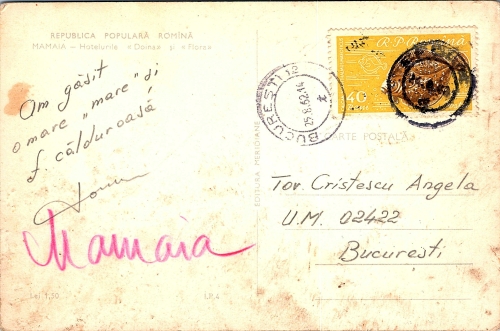 REPUBLICA POPULARĂ ROMÎNĂ
MAMAIA — Hotelurile «Doina» și «Flora»
Am găsit
o mare „mare" și
f. călduroasă
Mamaia
Lei 1,30
I.P.4
EDITURA MERIDIANE
BUCUREȘTI 12
25.8.62.14
R.P. Romina
40
CARTE POSTALĂ
Tov. Cristescu Angela
U.M. 02422
București